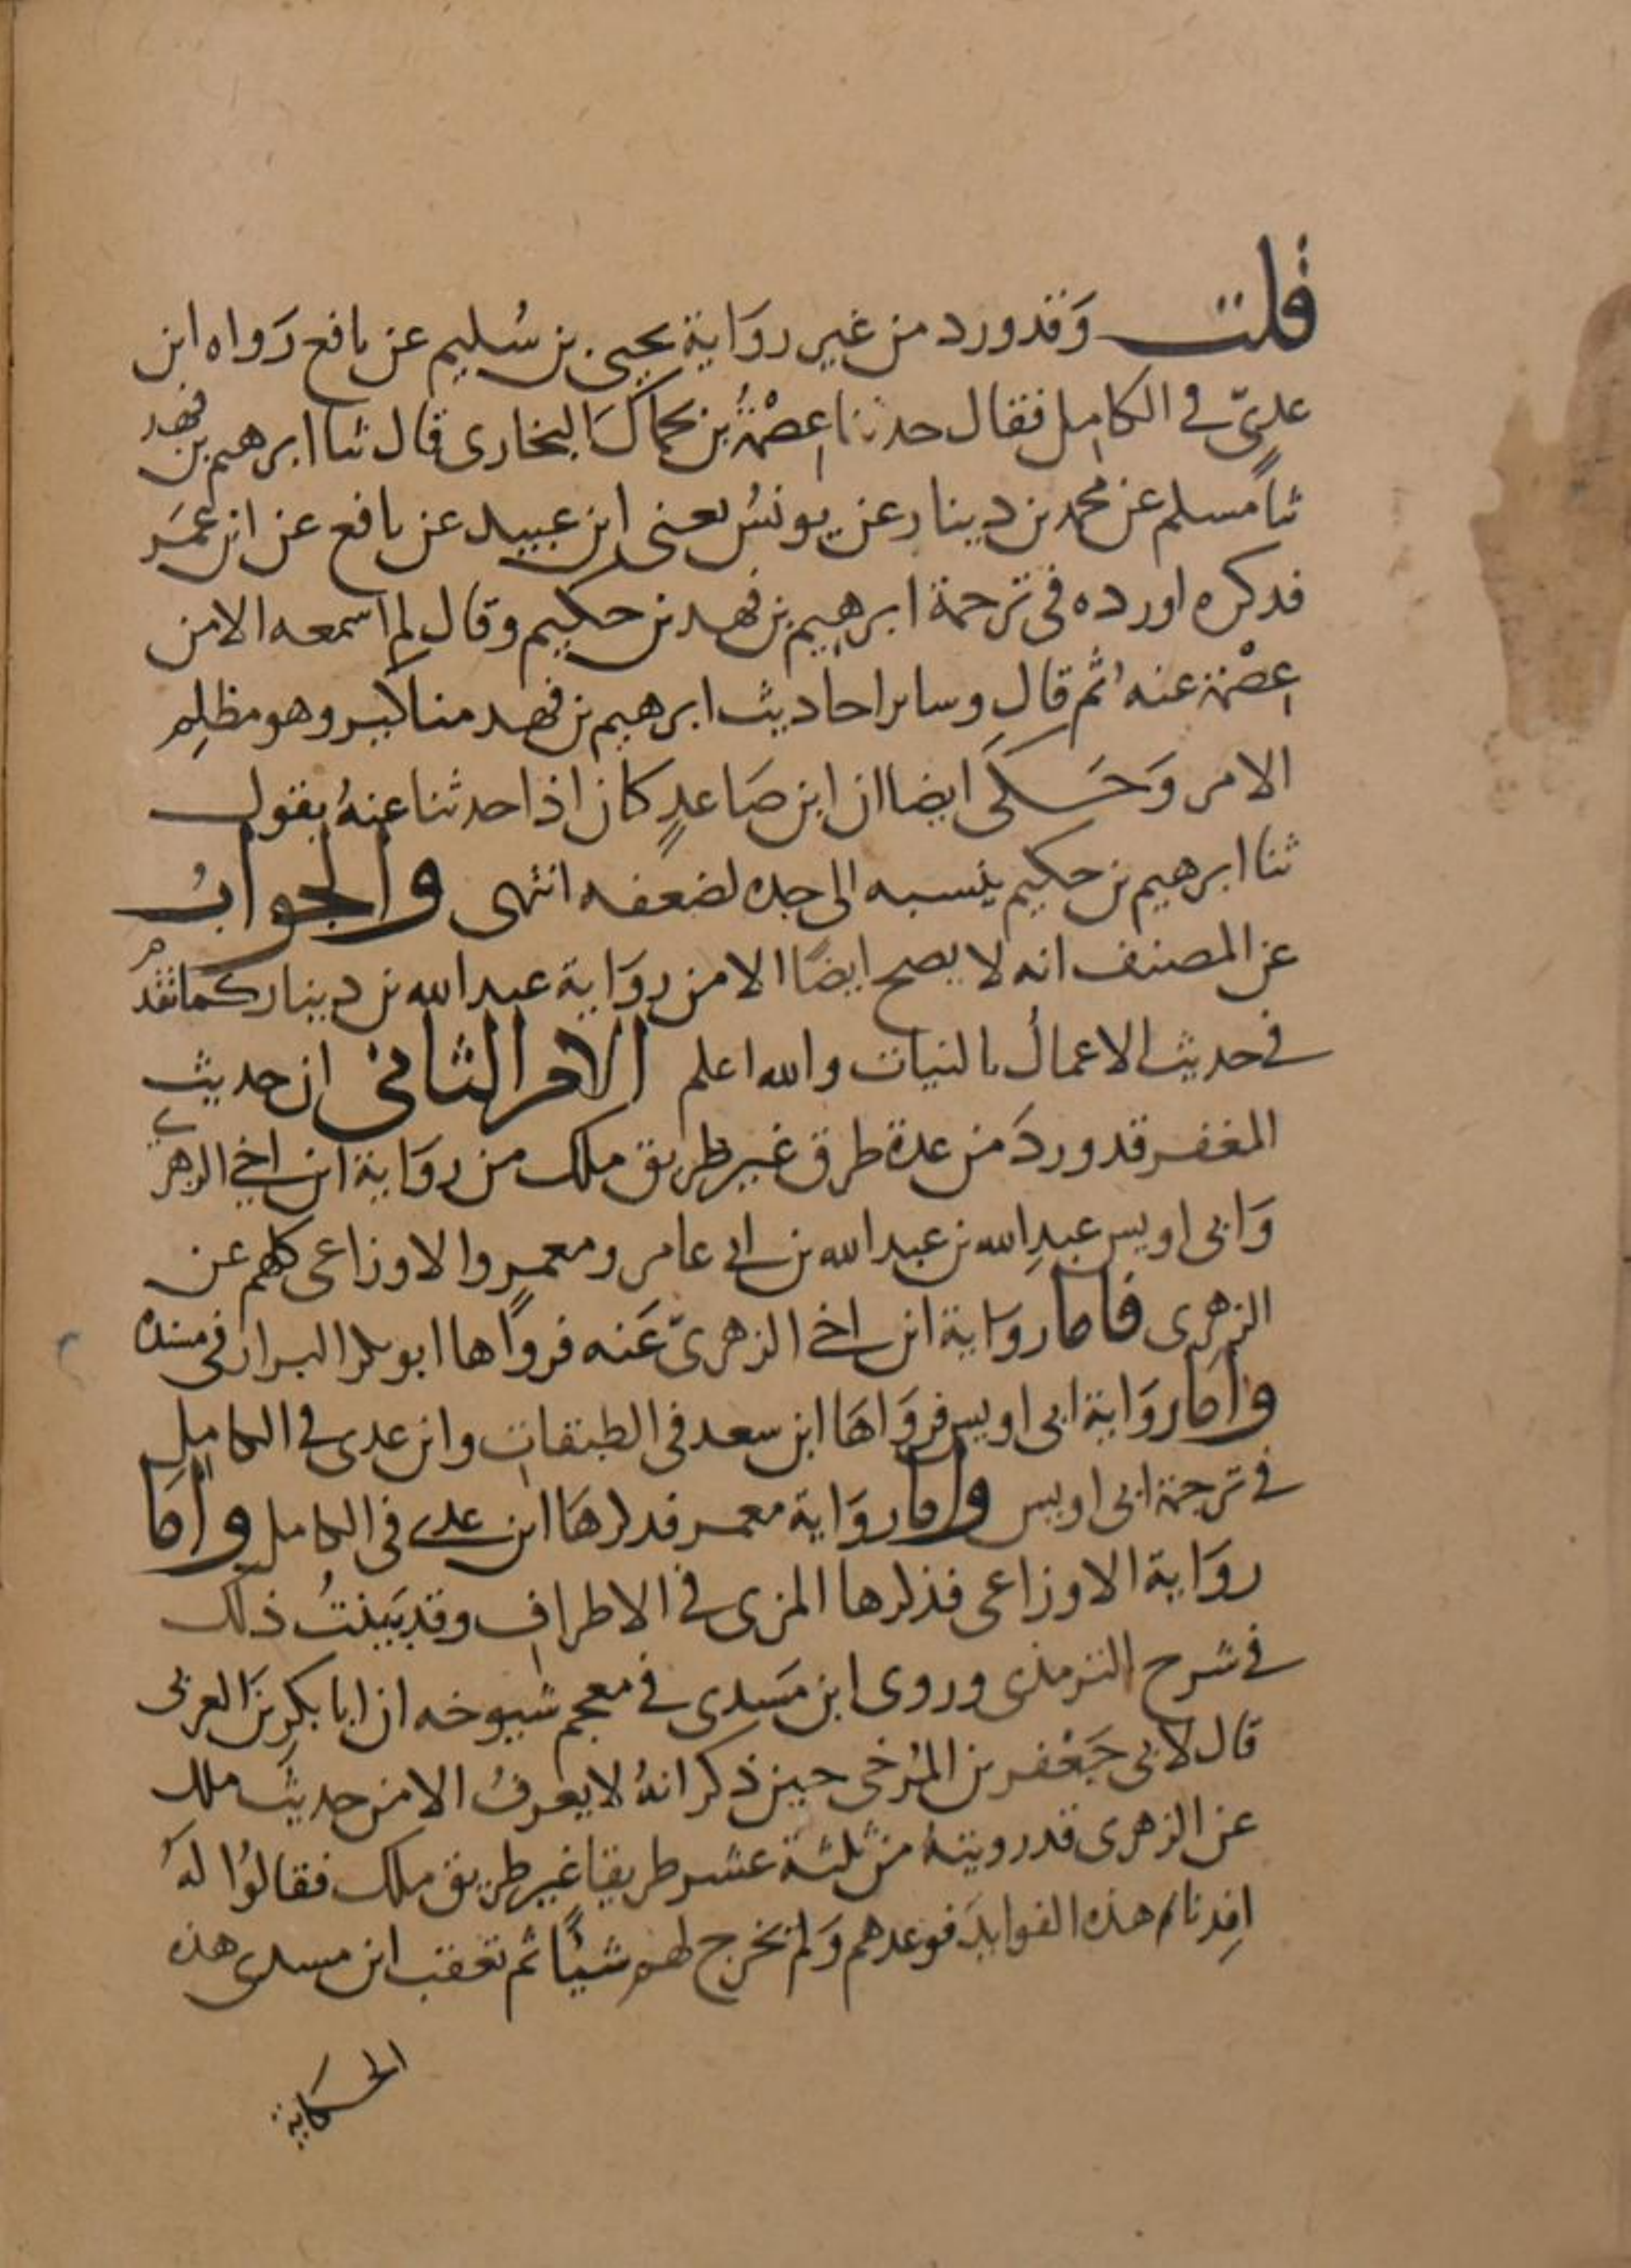 قلت وَقد ورد من غير روَاية يحيى بن سُليم عن نافع رَواه ابن
عديّ في الكامل فقال حدثنا عِصْمَةُ بن بجماكَ البخارى قال ثنا ابرهيم بن فهد
ثنا مسلم عن محمد بن دينار عن يونسُ يعنى ابن عبيد عن نافع عن ابن عُمَر
فذكره اورده فى ترجمة ابرهيم بن فهد بن حكيم وقال لم اسمعه الا من
عِصْمة عنه ثم قال وساير احاديث ابرهيم بن فهد مناكير وهو مظلِم
الامر وَحَكَى ايضا ان ابن صَاعدٍ كان اذا حدثنا عنهُ يقول
ثنا ابرهيم بن حكيم ينسبه الى جده لضعفه انتهى والجوابُ
عن المصنف انه لا يصح ايضًا الا من روَاية عبد الله بن دينار كما تقدم
في حديث الاعمالُ بالنيات والله اعلم الامر الثانى ان حديث
المغفر قد وردَ من عدة طرق غير طريق ملك من روَاية ابن اخي الزهرى
وَابى اويس عبدِ الله بن عبد الله بن ابي عامر ومعمر والاوزاعى كلهم عن
الزهرى فاما رواية ابن اخي الزهرىّ عَنه فروَاها ابو بكر البزار فى مسنده
وامَا روَاية ابى اويس فروَاهَا ابن سعد فى الطبقات وابن عدى في الكامل
في ترجمة ابى اويس واما روَاية معمر فذكرهَا ابن عدي فى الكامل وامَا
روَاية الاوزاعى فذكرها المزى في الاطراف وقد بَينتُ ذلك
في شرح الترمذى وروى ابن مَسْدى في معجم شيوخه ان ابا بكرِ بنَ العربى
قال لابى جَعْفر بن المُرخى حين ذكر انهُ لا يعرفُ الا من حديث ملك
عن الزهرى قد رويته من ثلثة عشر طريقا غير طريق ملك فقالوُا لهُ
افِدنا هذه الفوايدَ فوعدهم وَلم يخرج لهم شيًا ثم تعقب ابن مسدى هذه
الحكاية